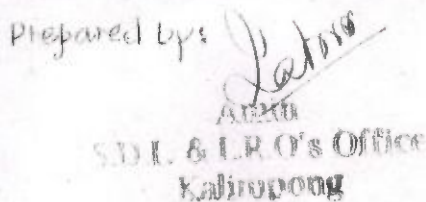 Prepared by:
S.D.L. & L.R.O's Office
Kalimpong